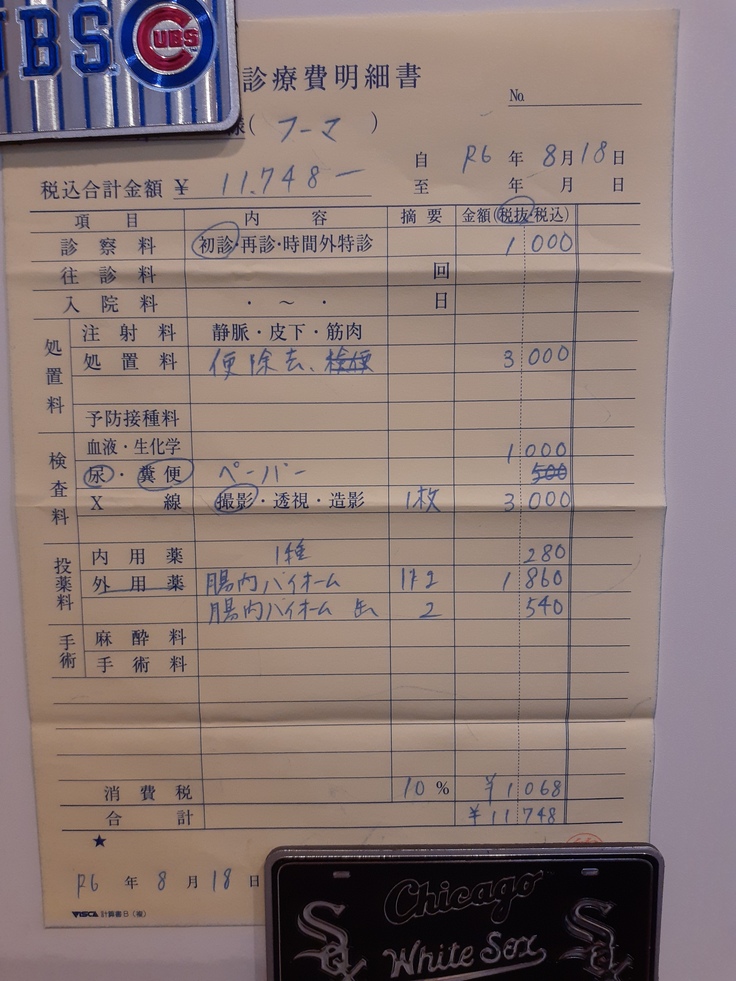 UBS CUBS
診療費明細書
No.
様( フーマ )
自 R6 年 8月18日
税込合計金額 ¥ 11.748-
至 年 月 日
項目 内容 摘要 金額(税抜・税込)
診察料 初診・再診・時間外特診 1 000
往診料 回
入院料 ・ ～ ・ 日
処置料 注射料 静脈・皮下・筋肉
処置料 便除去、検便 3 000
予防接種料
検査料 血液・生化学 1 000
尿・糞便 ペーパー 500
X線 撮影・透視・造影 1枚 3 000
投薬料 内用薬 1種 280
外用薬 腸内バイオーム 1 860
腸内バイオーム 缶 2 540
手術 麻酔料
手術料
消費税 10% ¥1 068
合計 ¥11 748
★
R6 年 8 月 18 日
VISCA 計算書B(複)
Chicago
Sox White Sox Sox